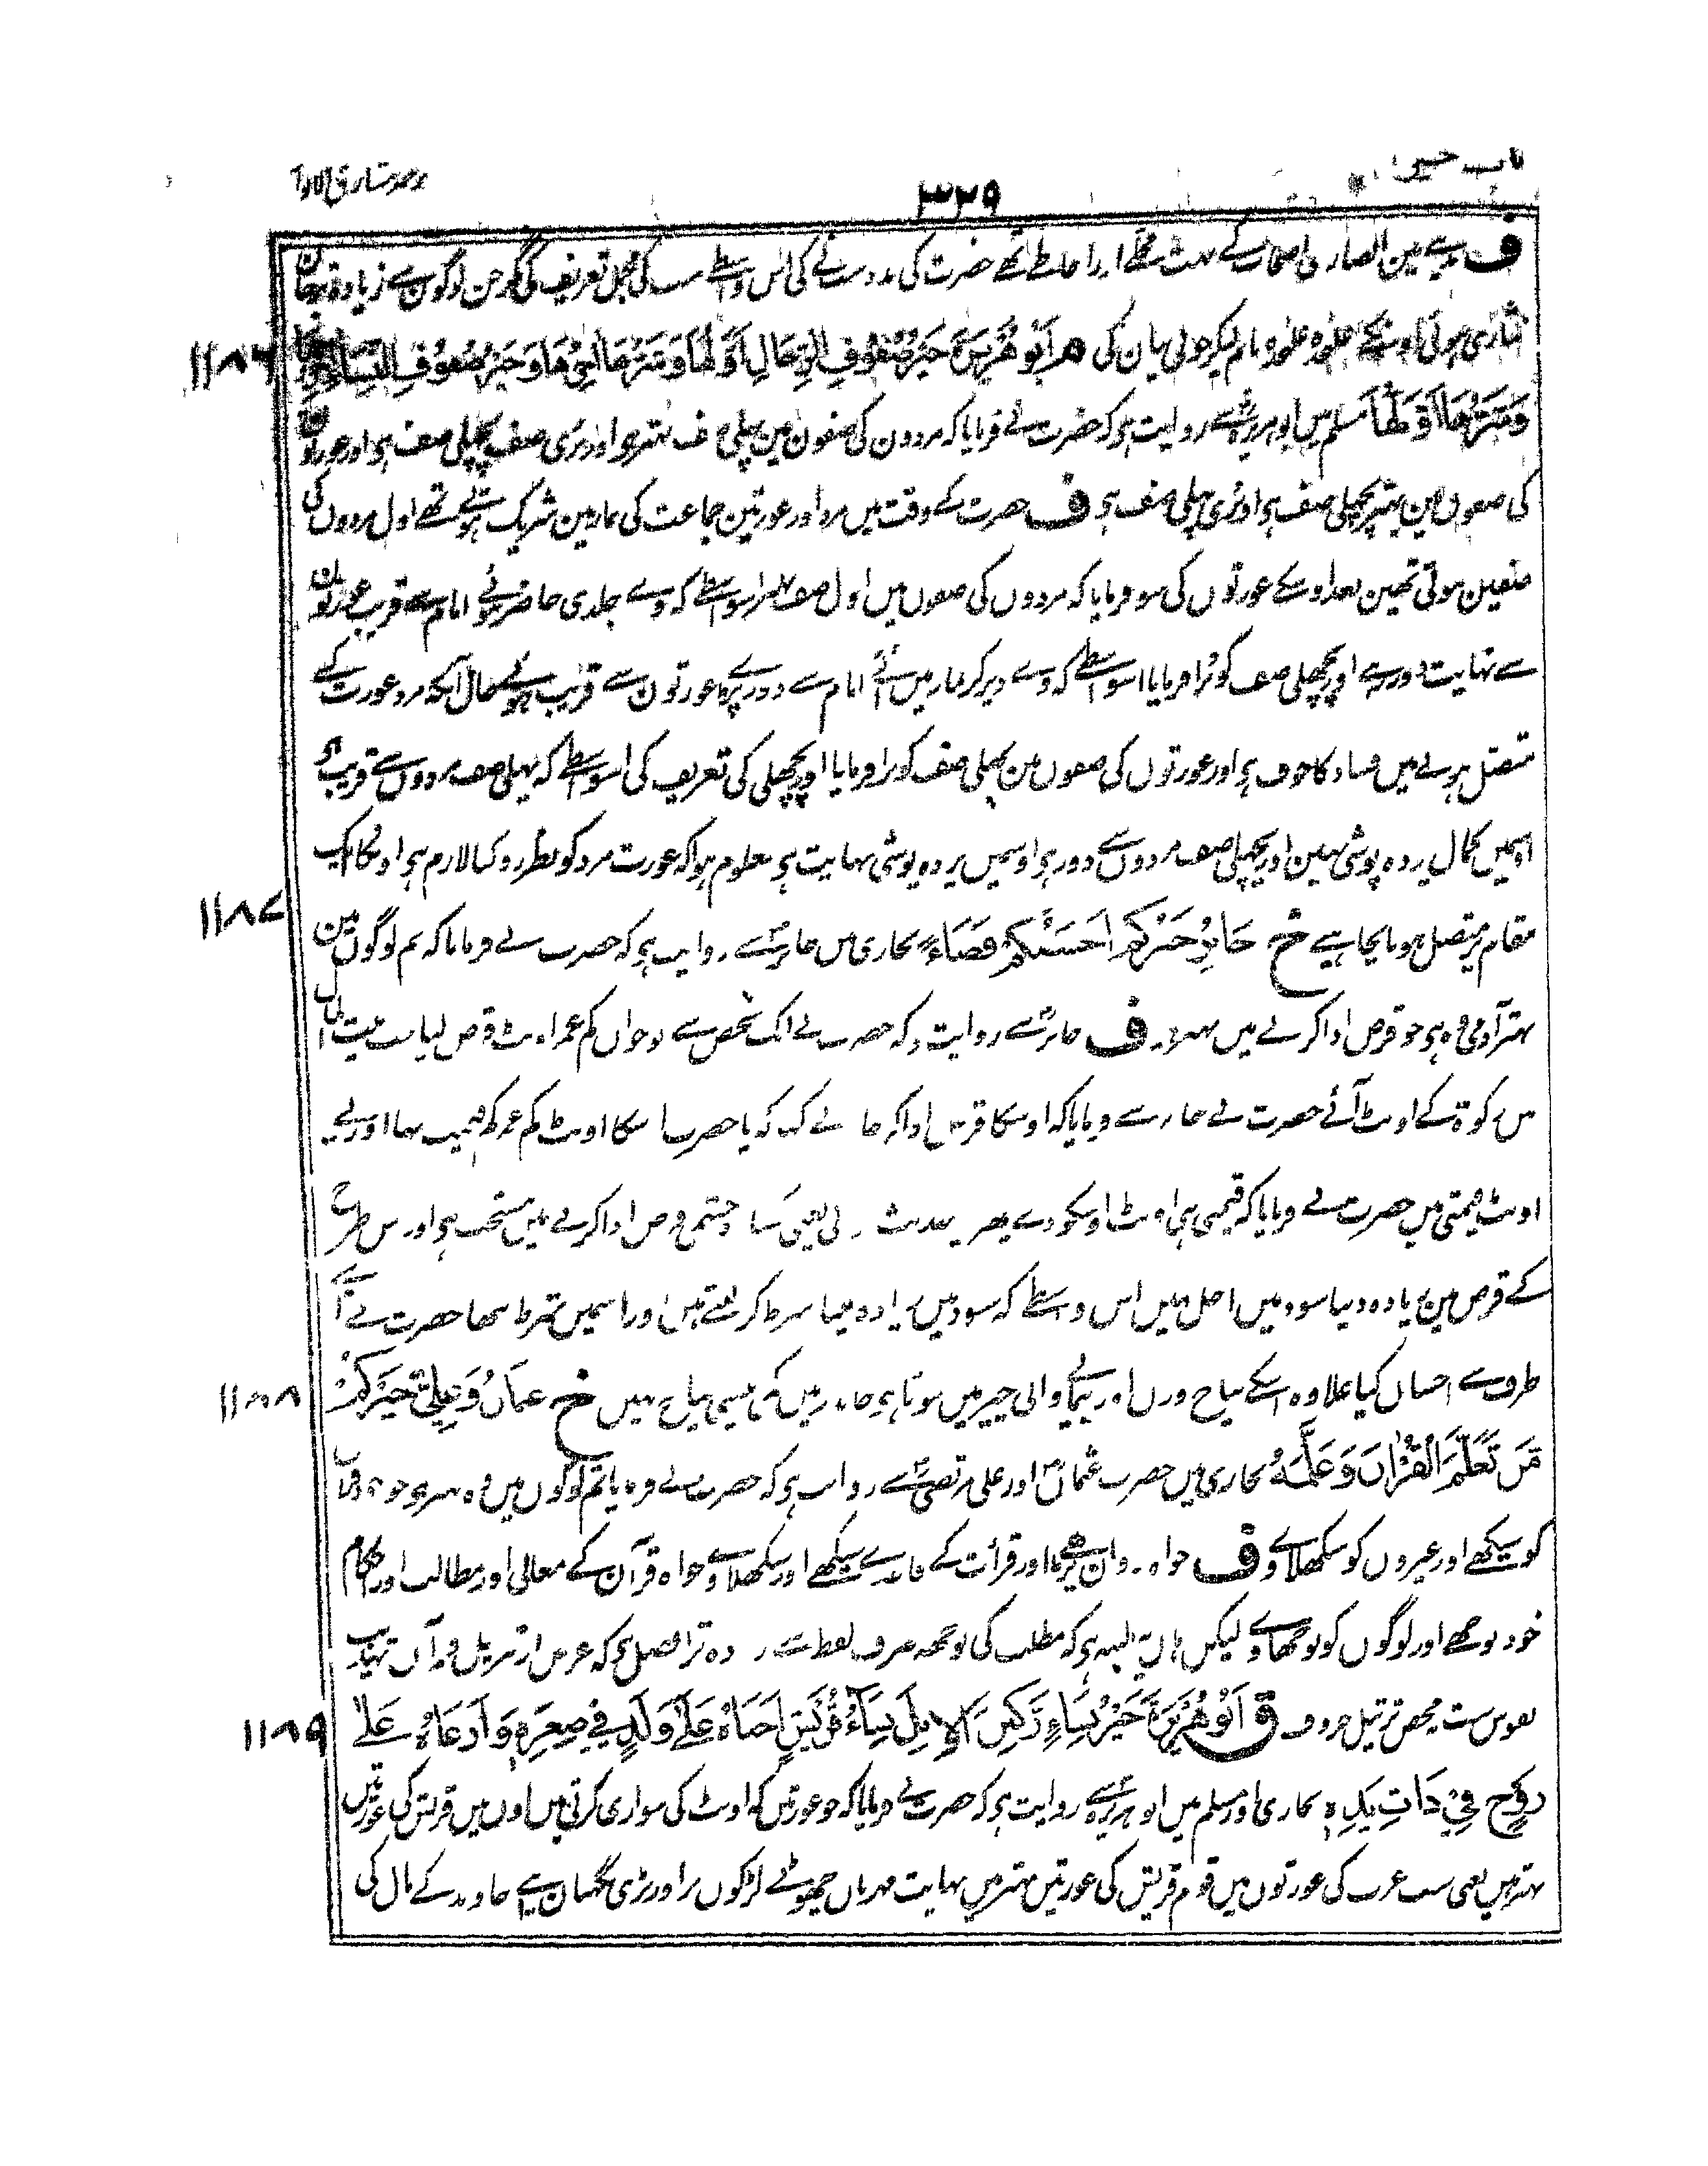 باب
٣٣٩
ف مدینے میں انصاری اصحاب کے بہت محلے اور احاطے تھے حضرت کی مدد سب نے کی اس واسطے سب کی مجمل تعریف کی مگر جن لوگوں سے زیادہ
م ابو هریرة خیر صفوف الرجال اولها وشرها اخرها وخیر صفوف النساء
وشرها اولها مسلم میں ابوہریرہ سے روایت ہے کہ حضرت نے فرمایا کہ مردون کی صفون مین پہلی صف بہتر ہے اور بری صف پچھلی صف ہے اور
کی صفوں مین بہتر پچھلی صف ہے اور بری پہلی صف ہے ف حضرت کے وقت میں مرد اور عورتین جماعت کی نماز مین شریک ہوتے تھے اول مردوں کی
صفین ہوتی تھین بعد اوسکے عورتوں کی سو فرمایا کہ مردوں کی صفوں میں اول صف بہتر اسواسطے کہ وے جلدی حاضر ہوئے امام سے قریب عورتون
سے نہایت دور رہے اور پچھلی صف کو برا فرمایا اسواسطے کہ وے دیر کر نماز میں آئے امام سے دور پڑے عورتون سے قریب ہوئے حال آنکہ مرد عورت کے
متصل ہونے میں فساد کا خوف ہے اور عورتوں کی صفوں مین پہلی صف کو برا فرمایا اور پچھلی کی تعریف کی اسواسطے کہ پہلی صف مردوں سے قریب ہے
اوسمیں کمال پردہ پوشی نہین اور پچھلی صف مردوں سے دور ہے اوسمیں پردہ پوشی نہایت ہے معلوم ہوا کہ عورت مرد کو نظر روکنا لازم ہے
١١٨٧
مقام پر متصل ہونا نچاہیے خ جابر خیرکم احسنکم قضاء بخاری میں جابر سے روایت ہے کہ حضرت نے فرمایا کہ تم لوگوں مین
بہتر آدمی وہ ہے جو قرض ادا کرنے میں بہتر ہے ف جابر سے روایت ہے کہ حضرت نے ایک شخص سے جوان کم عمر اونٹ قرض لیا
زکوة کے اونٹ آئے حضرت نے جابر سے فرمایا کہ اوسکا قرض ادا کر جابر نے کہا کہ یا حضرت اسکا اونٹ کم عمر کم قیمت تھا اور
اونٹ قیمتی ہیں حضرت نے فرمایا کہ قیمتی ہی اونٹ اوسکو دے
کے قرض مین زیادہ دینا سود میں داخل نہیں اس واسطے کہ سود میں زیادہ لینا شرط کر لیتے ہیں اور اسمیں شرط نتھا حضرت نے
١١٨٨
طرف سے احسان کیا علاوہ اسکے بیاج وزن اور پیمانے والی چیز میں ہوتا ہے جاندار میں خ عثمان وعلی خیرکم
من تعلم القران وعلمه بخاری میں حضرت عثمان اور علی مرتضی سے روایت ہے کہ حضرت نے فرمایا تم لوگوں میں وہ بہتر ہے جو قرآن
کو سیکھے اور غیروں کو سکھلاوے ف خواہ روان پڑھے اور قرأت کے قاعدے سیکھے اور سکھلاوے خواہ قرآن کے معانی اور مطالب اور احکام
خود بوجھے اور لوگوں کو بوجھاوے لیکن ہاں البتہ ہے کہ مطلب کی بوجھ صرف لفظ سے زیادہ تر افضل ہے کہ غرض از تنزیل قرآن تہذیب
١١٨٩
نفوس ست نہ محض ترتیل حروف ق ابو هریرة خیر نساء رکبن الابل نساء قریش احناه علی ولد فی صغره وارعاه علی
زوج فی ذات یده بخاری اور مسلم میں ابو ہریرہ سے روایت ہے کہ حضرت نے فرمایا کہ جو عورتیں کہ اونٹ کی سواری کرتی ہیں اون میں قریش کی عورتیں
بہتر ہیں یعنی سب عرب کی عورتوں میں قوم قریش کی عورتیں بہتر ہیں نہایت مہربان چھوٹے لڑکوں پر اور بڑی نگہبان ہیں خاوند کے مال کی